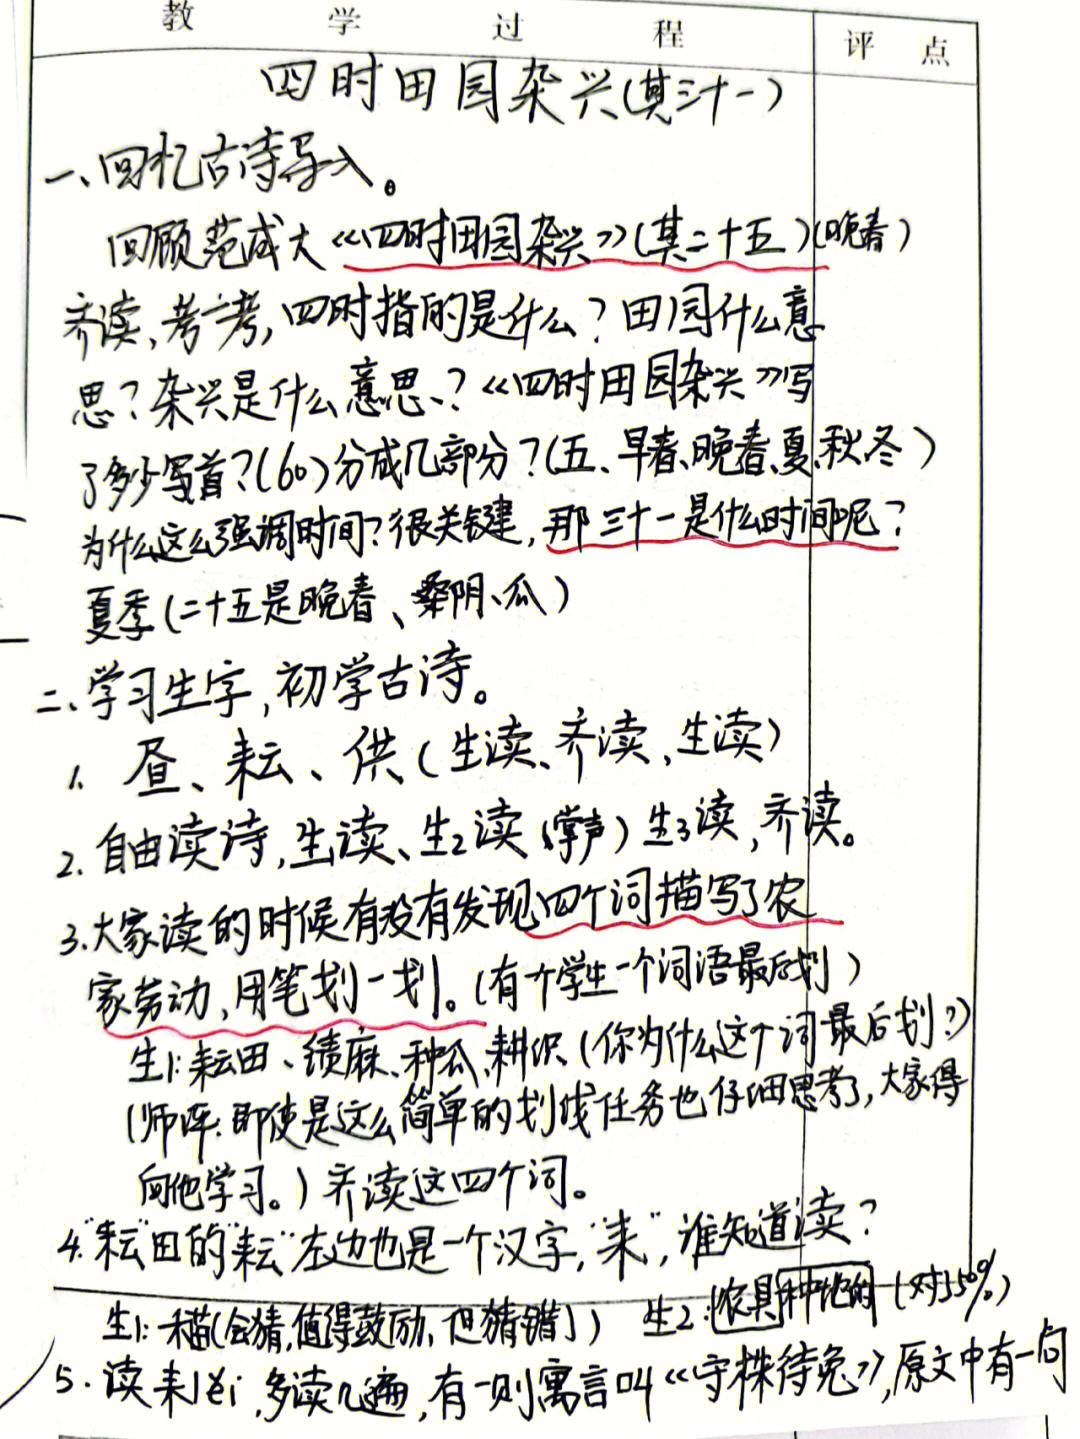 教 学 过 程 评 点
四时田园杂兴(其三十一)
一、回忆古诗导入。
回顾范成大《四时田园杂兴》(其二十五)(晚春)
齐读、考一考,四时指的是什么?田园什么意
思?杂兴是什么意思、?《四时田园杂兴》写
了多少写首?(60)分成几部分?(五、早春、晚春、夏、秋、冬)
为什么这么强调时间?很关键,那三十一是什么时间呢?
夏季(二十五是晚春、桑阴、瓜)
二、学习生字,初学古诗。
1. 昼、耘、供(生读、齐读、生读)
2. 自由读诗,生读、生2读(掌声)生3读,齐读。
3.大家读的时候有没有发现四个词描写了农
家劳动,用笔划一划。(有个学生一个词语最后划)
生1:耘田、绩麻、种瓜、耕织(你为什么这个词最后划?)
(师评:即使是这么简单的划线任务也仔细思考了,大家得
向他学习。)齐读这四个词。
4."耘"田的"耘"左边也是一个汉字,"耒",谁知道读?
生1:(会猜,值得鼓励,但猜错了) 生2:农具种地的(对50%)
5.读耒lěi,多读几遍,有一则寓言叫《守株待兔》,原文中有一句